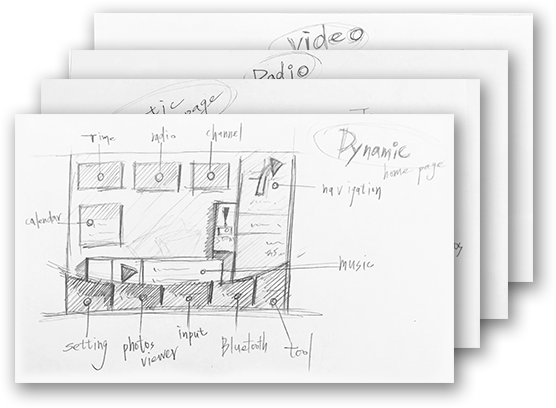 Video
Radio
page
Dynamic
home page
Time
radio
channel
navigation
calendar
music
setting
photos
viewer
input
Bluetooth
tool